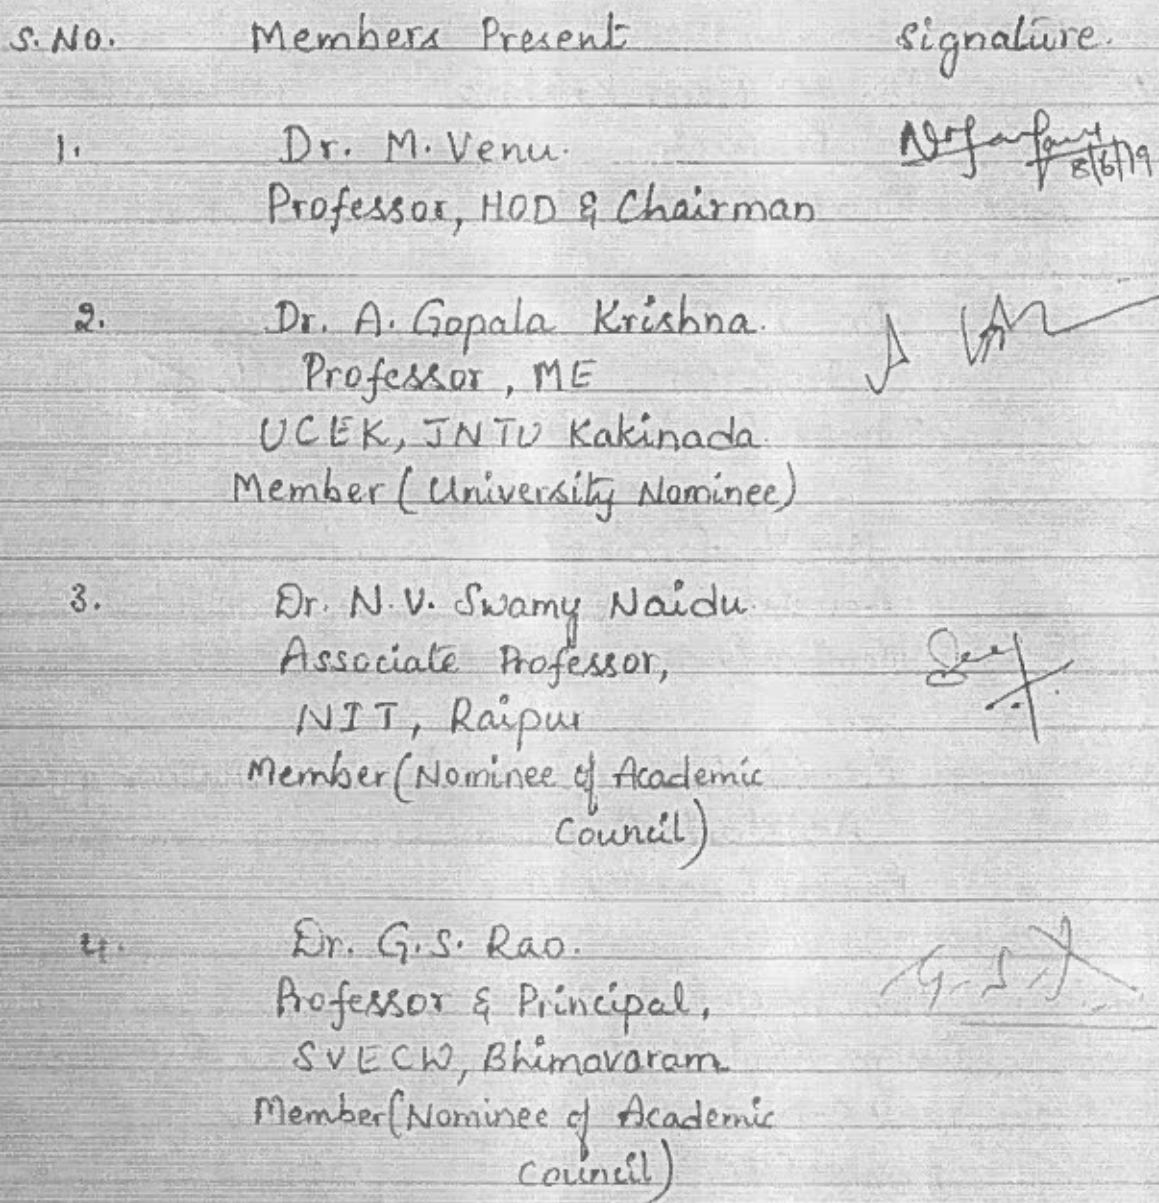 S. No. Members Present Signature.
1. Dr. M. Venu. 8/6/19
Professor, HOD & Chairman
2. Dr. A. Gopala Krishna.
Professor, ME
UCEK, JNTU Kakinada.
Member (University Nominee)
3. Dr. N.V. Swamy Naidu.
Associate Professor,
NIT, Raipur
Member (Nominee of Academic
Council)
4. Dr. G.S. Rao.
Professor & Principal,
SVECW, Bhimavaram
Member (Nominee of Academic
Council)